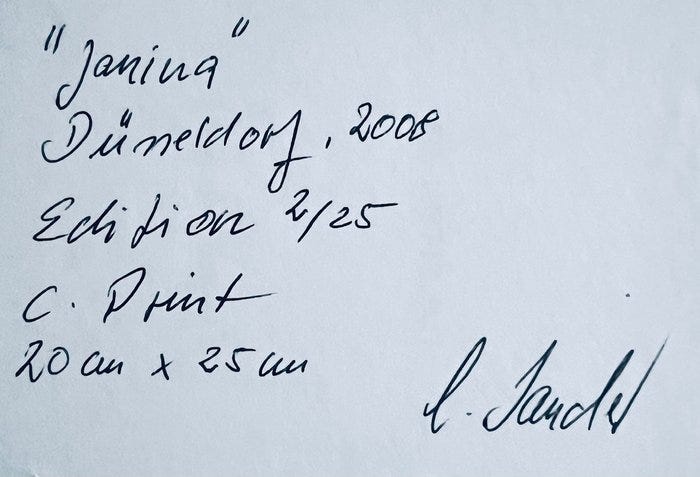 "Janina"
Düsseldorf, 2008
Edition 2/25
C. Print
20 cm x 25 cm